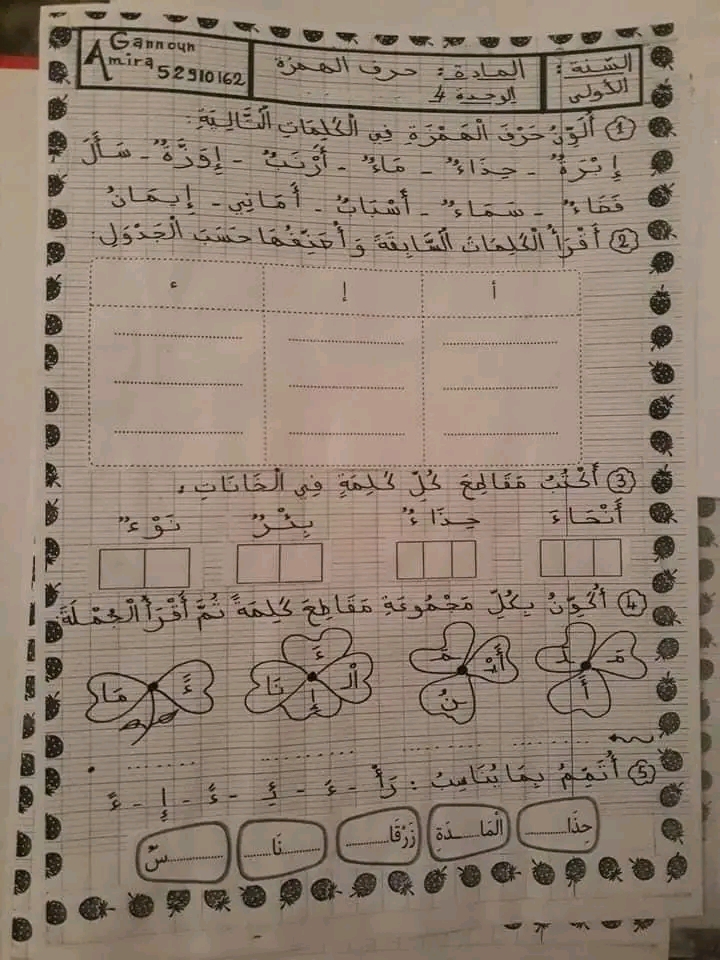 السّنة: الأولى
المادة: حرف الهمزة
الوحدة 4
Gannoun
Amira 52910162
1 أُلَوِّنُ حَرْفَ الْهَمْزَةِ فِي الْكَلِمَاتِ التَّالِيَةِ:
إِبْرَةٌ - حِذَاءٌ - مَاءٌ - أَرْنَبٌ - إِوَزَّةٌ - سَأَلَ
فَضَاءٌ - سَمَاءٌ - أَسْبَابٌ - أَمَانِي - إِيمَانُ
2 أَقْرَأُ الْكَلِمَاتِ السَّابِقَةَ وَأُصَنِّفُهَا حَسَبَ الْجَدْوَلِ:
أ إ ء
3 أَكْتُبُ مَقَاطِعَ كُلِّ كَلِمَةٍ فِي الْخَانَاتِ:
أَنْحَاءَ حِذَاءٌ بِئْرٌ نَوْءٌ
4 أُكَوِّنُ بِكُلِّ مَجْمُوعَةِ مَقَاطِعَ كَلِمَةً ثُمَّ أَقْرَأُ الْجُمْلَةَ:
مَ أَ
نُ
الْ إِ ءَ نَا
ءً مَا
5 أُتَمِّمُ بِمَا يُنَاسِبُ: رَأْ - ءَ - ئِـ - ءً - إِ - ءً
حِذَا.......... الْمَا.......دَةِ زَرْقَا.......... .........نَا......... ...............سٌ